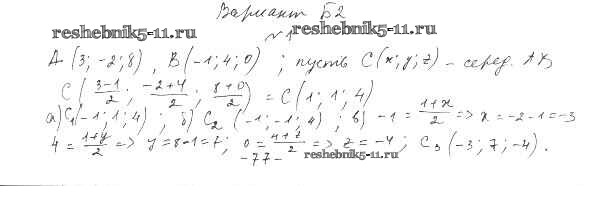 Вариант Б2
reshebnik5-11.ru
№1 reshebnik5-11.ru
A (3; -2; 8), B (-1; 4; 0); пусть C (x; y; z) – серед. AB
C (3-1/2; -2+4/2; 8+0/2) = C (1; 1; 4)
а) C₁ (-1; 1; 4); б) C₂ (-1; -1; 4); в) -1 = 1+x/2 => x = -2-1 = -3
4 = 1+y/2 => y = 8-1 = 7; 0 = 4+z/2 => z = -4; C₃ (-3; 7; -4).
-77-
reshebnik5-11.ru